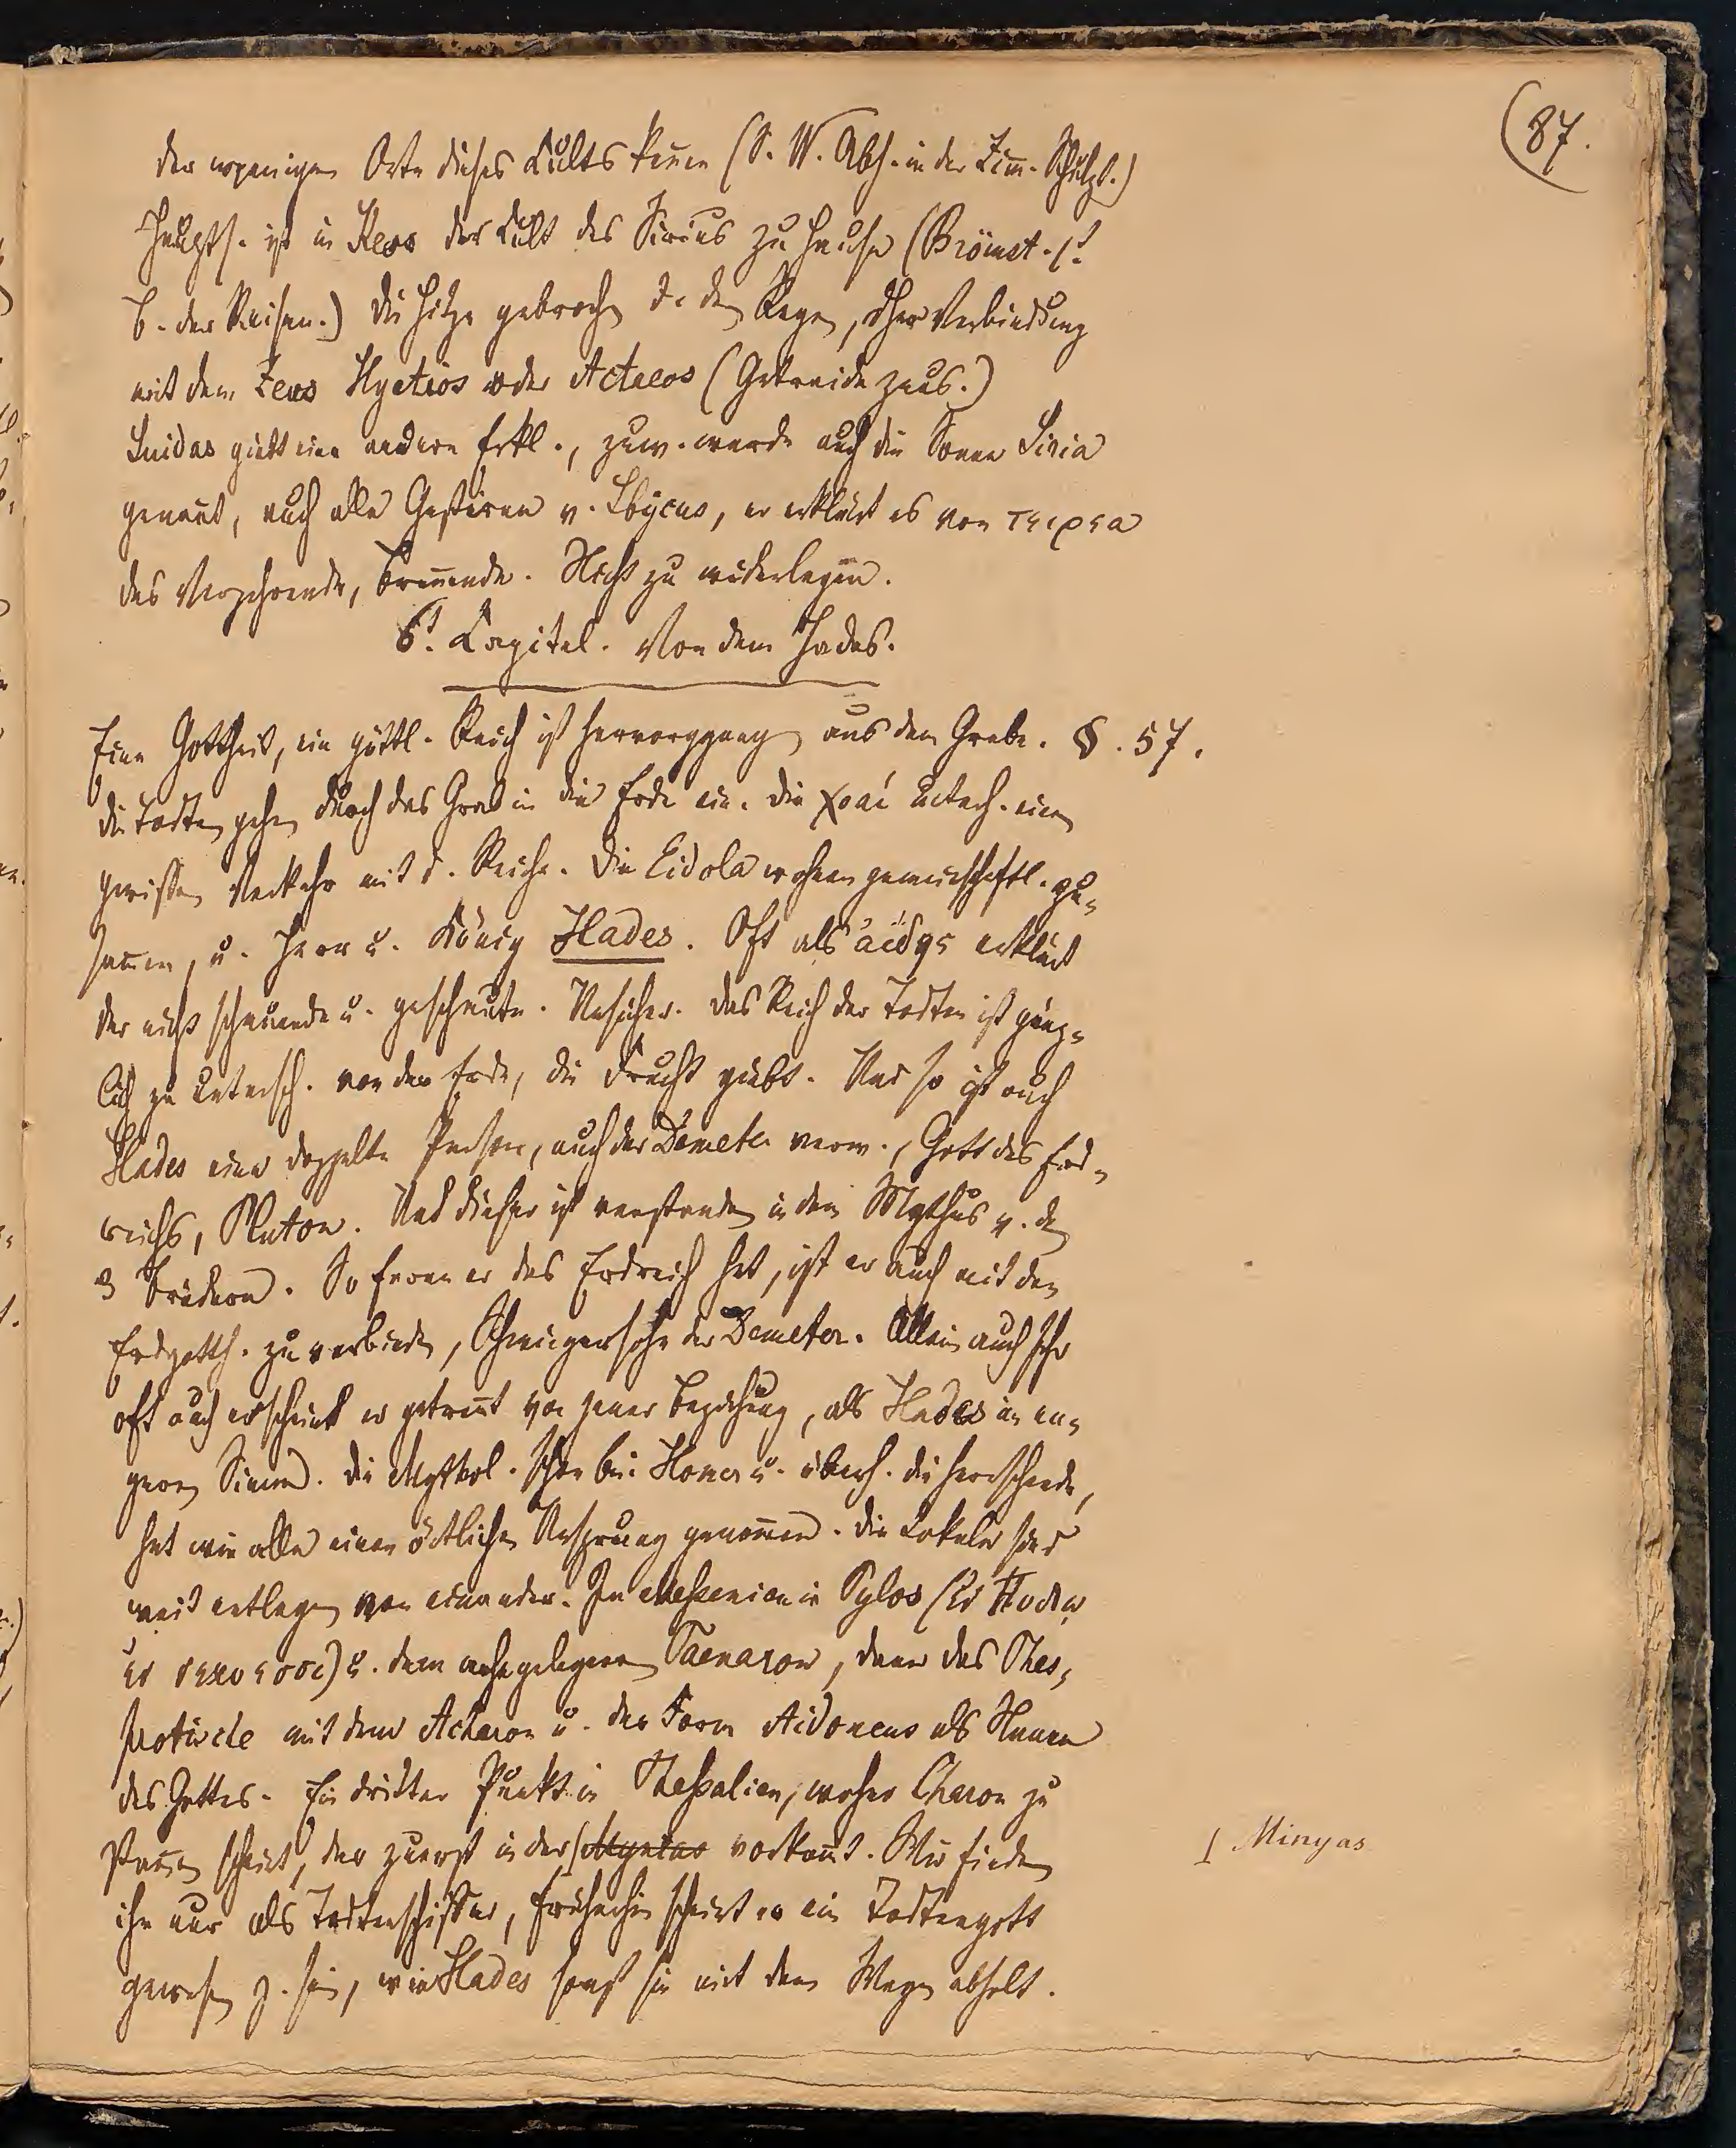 87.
der wenigen Orte dieses Kults kennen (S. W. Abh. in der Zim. Schulzt.)
Haupts. ist in Keos der Kult des Sirius zu Hause (Brönst. 1t
B. der Reisen.) Die Hitze gebroch. d. den Regen, dher Verbindung
mit dem Zeus Hyetios oder Actaeos (Getreidezeus.)
Suidas giebt eine andere Erkl., zuw. wurde auch die Sonne Siria
genannt, auch alle Gestirne v. Ibycus, er erklärt es von τειρεα
das Verzehrende, brennende. Nicht zu widerlegen.
6t. Capitel. Von dem Hades.
Eine Gottheit, ein göttl. Reich ist hervorggang. aus dem Grabe. §. 57.
Die Todten gehen durch das Grab in die Erde ein. Die χοαί unterh. einen
gewissen Verkehr mit d. Reiche. Die Eidola wohnen gemeinschaftl. zu-
sammen, u. Herr u. König Hades. Oft als ἀϊδης erklärt
der nicht schauende u. geschaute. Unsicher. Das Reich der Todten ist gänz-
lich zu untersch. von der Erde, die Frucht giebt. Und so ist auch
Hades eine doppelte Person, auch der Demeter verw., Gott des Erd-
reichs, Pluton. Und dieser ist verstanden in dem Mythus v. den
3 Brüdern. So fern er das Erdreich hat, ist er auch mit den
Erdgotth. zu verbinden, Schwiegersohn der Demeter. Allein auch sehr
oft auch erscheint er getrennt von jener Beziehung, als Hades im en-
gern Sinne. Die Mythol. schon bei Homer u. überh. die herrschende,
hat wie alle einen örtlichen Ursprung genommen. Die Lokale sind
weit entlegen von einander. In Messenien in Pylos (ἐν Πυλῳ
ἐν νεκυεσσι) u. dem nahe gelegenen Taenaron, dann das Thes-
protische mit dem Acheron u. der Form Aidoneus als Namen
des Gottes. Ein dritter Punkt in Thessalien, woher Charon zu
stammen scheint, der zuerst in der vorkommt. Wir finden
Minyas
ihn nur als Todtenschiffer, früherhin scheint er ein Todtengott
gewesen z. sein, wie Hades sonst sie mit dem Wagen abholt.